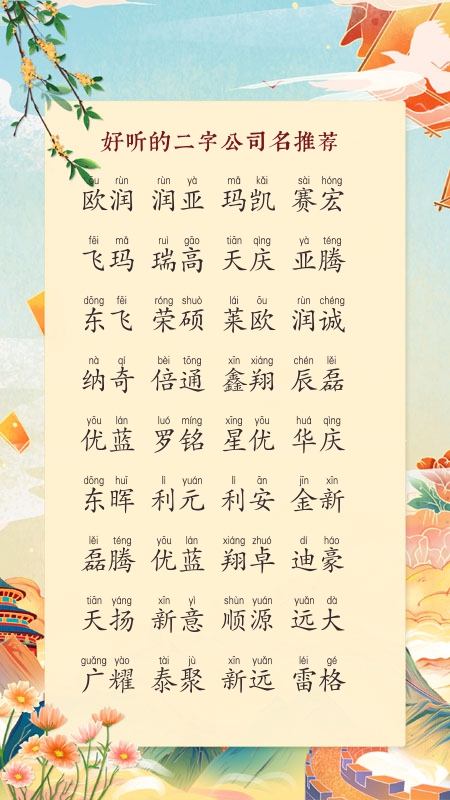 好听的二字公司名推荐
ōu rùn rùn yà mǎ kǎi sài hóng
欧润 润亚 玛凯 赛宏
fēi mǎ ruì gāo tiān qìng yà téng
飞玛 瑞高 天庆 亚腾
dōng fēi róng shuò lái ōu rùn chéng
东飞 荣硕 莱欧 润诚
nà qí bèi tōng xīn xiáng chén lěi
纳奇 倍通 鑫翔 辰磊
yōu lán luó míng xīng yōu huá qìng
优蓝 罗铭 星优 华庆
dōng huī lì yuán lì ān jīn xīn
东晖 利元 利安 金新
lěi téng yōu lán xiáng zhuó dí háo
磊腾 优蓝 翔卓 迪豪
tiān yáng xīn yì shùn yuán yuǎn dà
天扬 新意 顺源 远大
guǎng yào tài jù xīn yuǎn léi gé
广耀 泰聚 新远 雷格